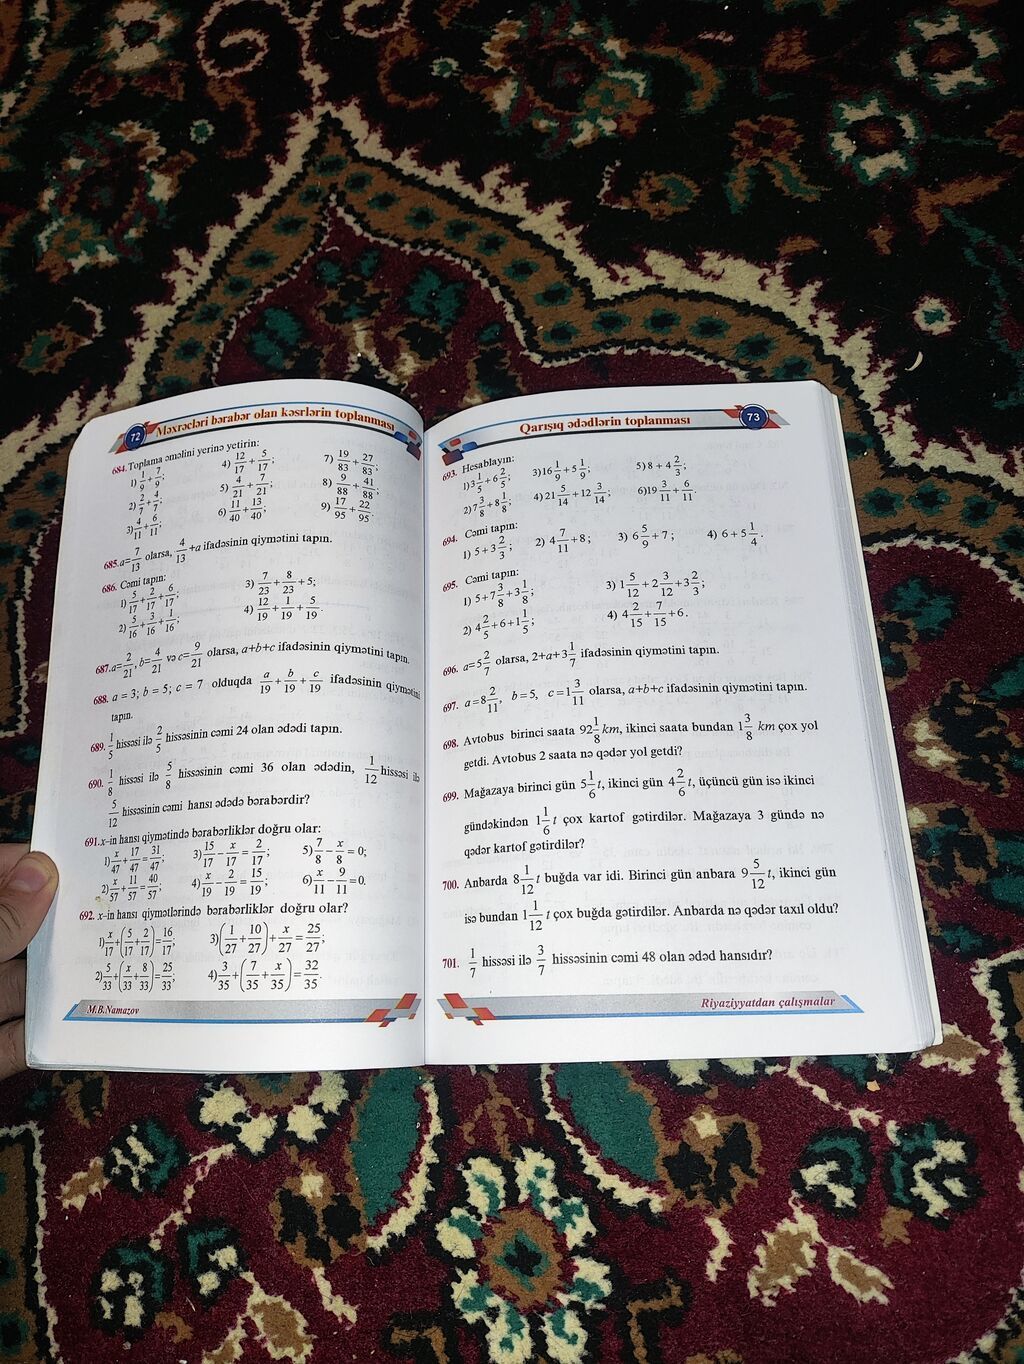 72 Məxrəcləri bərabər olan kəsrlərin toplanması
684. Toplama əməlini yerinə yetirin:
1) 1/9 + 7/9; 4) 12/17 + 5/17; 7) 19/83 + 27/83;
2) 2/7 + 4/7; 5) 4/21 + 7/21; 8) 9/88 + 41/88;
3) 4/11 + 6/11; 6) 11/40 + 13/40; 9) 17/95 + 22/95.
685. a = 7/13 olarsa, 4/13 + a ifadəsinin qiymətini tapın.
686. Cəmi tapın:
1) 5/17 + 2/17 + 6/17; 3) 7/23 + 8/23 + 5;
2) 5/16 + 3/16 + 1/16; 4) 12/19 + 1/19 + 5/19.
687. a = 2/21, b = 4/21 və c = 9/21 olarsa, a+b+c ifadəsinin qiymətini tapın.
688. a = 3; b = 5; c = 7 olduqda a/19 + b/19 + c/19 ifadəsinin qiymətini
tapın.
689. 1/5 hissəsi ilə 2/5 hissəsinin cəmi 24 olan ədədi tapın.
690. 1/8 hissəsi ilə 5/8 hissəsinin cəmi 36 olan ədədin, 1/12 hissəsi ilə
5/12 hissəsinin cəmi hansı ədədə bərabərdir?
691. x–in hansı qiymətində bərabərliklər doğru olar:
1) x/47 + 17/47 = 31/47; 3) 15/17 − x/17 = 2/17; 5) 7/8 − x/8 = 0;
2) x/57 + 11/57 = 40/57; 4) x/19 − 2/19 = 15/19; 6) x/11 − 9/11 = 0.
692. x–in hansı qiymətlərində bərabərliklər doğru olar?
1) x/17 + (5/17 + 2/17) = 16/17; 3) (1/27 + 10/27) + x/27 = 25/27;
2) 5/33 + (x/33 + 8/33) = 25/33; 4) 3/35 + (7/35 + x/35) = 32/35.
M.B.Namazov
Qarışıq ədədlərin toplanması 73
693. Hesablayın:
1) 3 1/5 + 6 2/5; 3) 16 1/9 + 5 1/9; 5) 8 + 4 2/3;
2) 7 3/8 + 8 1/8; 4) 21 5/14 + 12 3/14; 6) 19 3/11 + 6/11.
694. Cəmi tapın:
1) 5 + 3 2/3; 2) 4 7/11 + 8; 3) 6 5/9 + 7; 4) 6 + 5 1/4.
695. Cəmi tapın:
1) 5 + 7 3/8 + 3 1/8; 3) 1 5/12 + 2 3/12 + 3 2/3;
2) 4 2/5 + 6 + 1 1/5; 4) 4 2/15 + 7/15 + 6.
696. a = 5 2/7 olarsa, 2+a+3 1/7 ifadəsinin qiymətini tapın.
697. a = 8 2/11, b = 5, c = 1 3/11 olarsa, a+b+c ifadəsinin qiymətini tapın.
698. Avtobus birinci saata 92 1/8 km, ikinci saata bundan 1 3/8 km çox yol
getdi. Avtobus 2 saata nə qədər yol getdi?
699. Mağazaya birinci gün 5 1/6 t, ikinci gün 4 2/6 t, üçüncü gün isə ikinci
gündəkindən 1 1/6 t çox kartof gətirdilər. Mağazaya 3 gündə nə
qədər kartof gətirdilər?
700. Anbarda 8 1/12 t buğda var idi. Birinci gün anbara 9 5/12 t, ikinci gün
isə bundan 1 1/12 t çox buğda gətirdilər. Anbarda nə qədər taxıl oldu?
701. 1/7 hissəsi ilə 3/7 hissəsinin cəmi 48 olan ədəd hansıdır?
Riyaziyyatdan çalışmalar